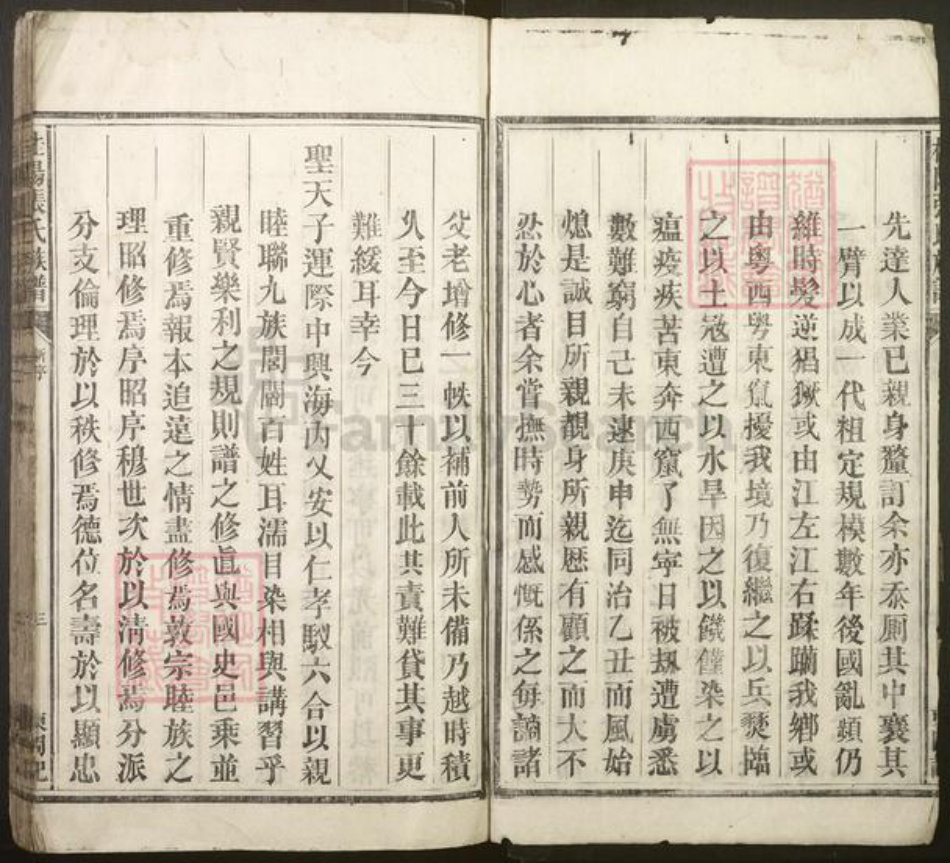 先達人業已親身釐訂余亦忝厠其中襄其
一臂以成一代粗定規模數年後國亂頻仍
維時髮逆猖獗或由江左江右蹂躪我鄉或
由粵西粵東竄擾我境乃復繼之以兵燹臨
之以土寇遭之以水旱因之以饑饉染之以
瘟疫疾苦東奔西竄了無寧日被刼遭虜悉
數難窮自己未逮庚申迄同治乙丑而風始
熄是誠目所親覩身所親歷有顧之而大不
忍於心者余嘗撫時勢而感慨係之每謫諸
父老增修一帙以補前人所未備乃越時積
久至今日已三十餘載此其責難貸其事更
難緩耳幸今
聖天子運際中興海內乂安以仁孝馭六合以親
睦聯九族閭閻百姓耳濡目染相與講習乎
親賢樂利之規則譜之修眞與國史邑乘並
重修焉報本追遠之情盡修焉敦宗睦族之
理昭修焉序昭序穆世次於以淸修焉分派
分支倫理於以秩修焉德位名壽於以顯忠
張氏族譜
新序
三
FamilySearch